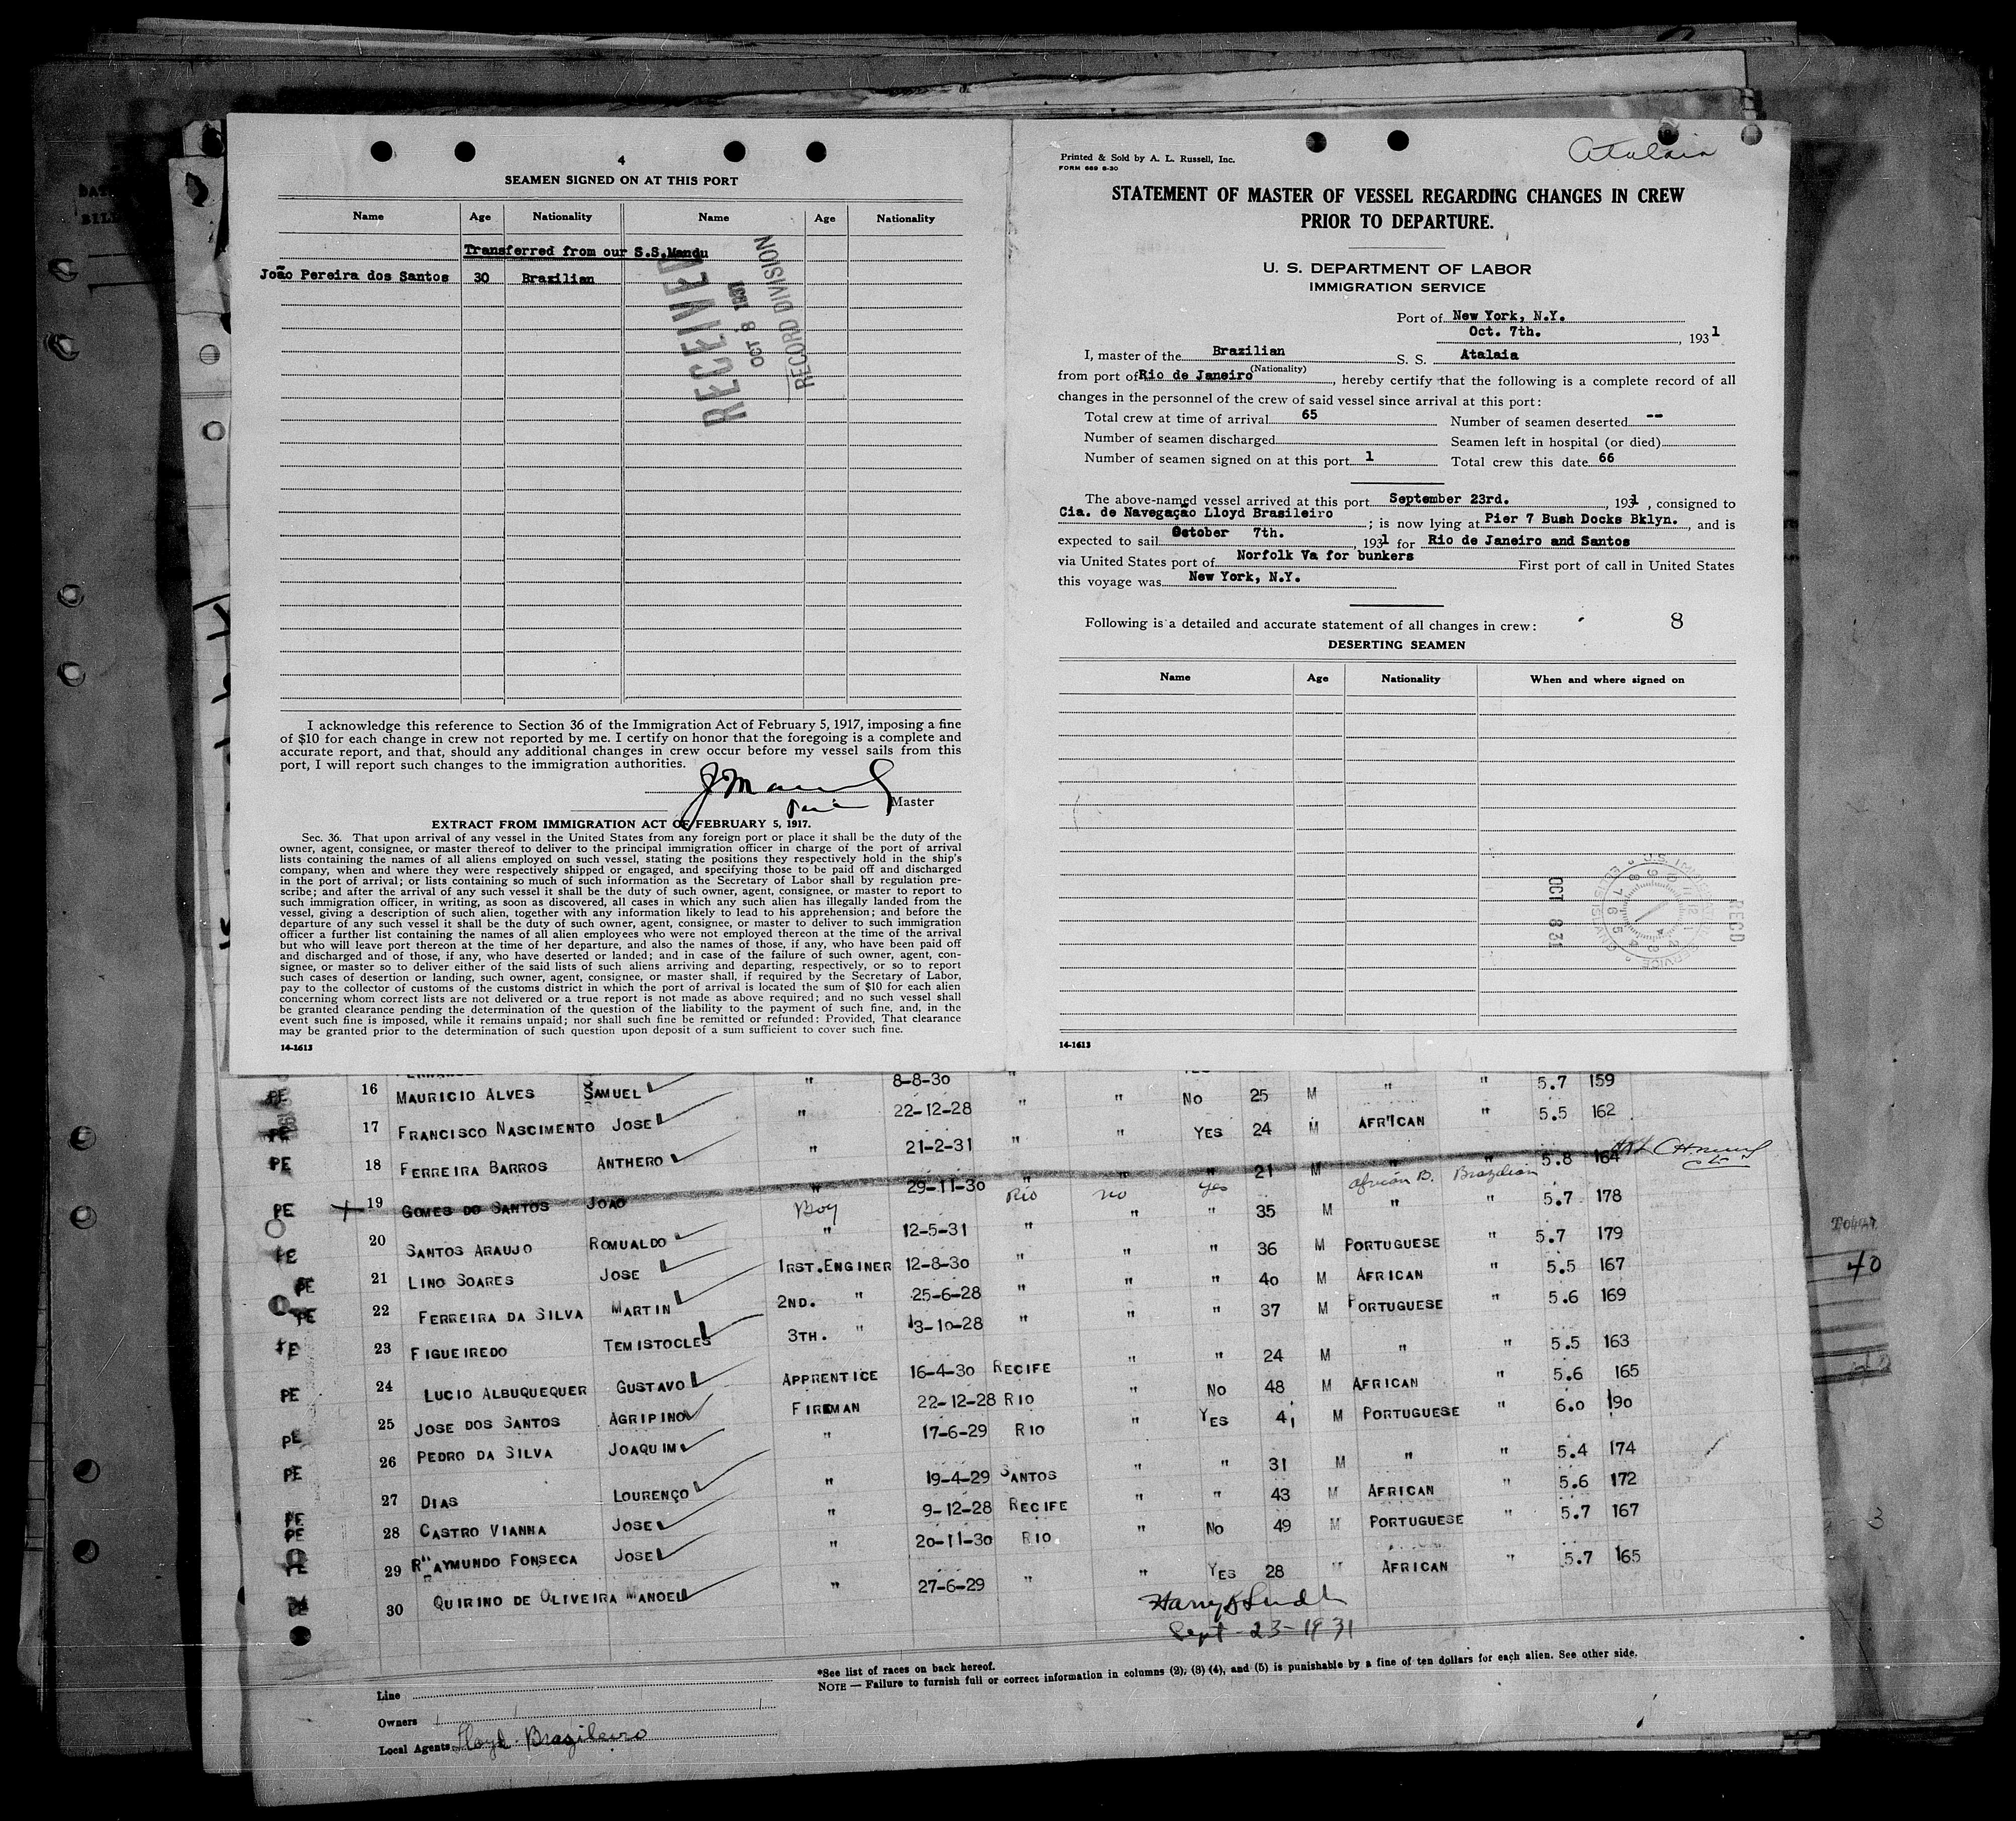 4
SEAMEN SIGNED ON AT THIS PORT
Name Age Nationality Name Age Nationality
Transferred from our S.S.Mandu
João Pereira dos Santos 30 Brazilian
RECEIVED
OCT 8 1931
RECORD DIVISION
I acknowledge this reference to Section 36 of the Immigration Act of February 5, 1917, imposing a fine
of $10 for each change in crew not reported by me. I certify on honor that the foregoing is a complete and
accurate report, and that, should any additional changes in crew occur before my vessel sails from this
port, I will report such changes to the immigration authorities.
Master
EXTRACT FROM IMMIGRATION ACT OF FEBRUARY 5, 1917.
Sec. 36. That upon arrival of any vessel in the United States from any foreign port or place it shall be the duty of the
owner, agent, consignee, or master thereof to deliver to the principal immigration officer in charge of the port of arrival
lists containing the names of all aliens employed on such vessel, stating the positions they respectively hold in the ship's
company, when and where they were respectively shipped or engaged, and specifying those to be paid off and discharged
in the port of arrival; or lists containing so much of such information as the Secretary of Labor shall by regulation pre-
scribe; and after the arrival of any such vessel it shall be the duty of such owner, agent, consignee, or master to report to
such immigration officer, in writing, as soon as discovered, all cases in which any such alien has illegally landed from the
vessel, giving a description of such alien, together with any information likely to lead to his apprehension; and before the
departure of any such vessel it shall be the duty of such owner, agent, consignee, or master to deliver to such immigration
officer a further list containing the names of all alien employees who were not employed thereon at the time of the arrival
but who will leave port thereon at the time of her departure, and also the names of those, if any, who have been paid off
and discharged and of those, if any, who have deserted or landed; and in case of the failure of such owner, agent, con-
signee, or master so to deliver either of the said lists of such aliens arriving and departing, respectively, or so to report
such cases of desertion or landing, such owner, agent, consignee, or master shall, if required by the Secretary of Labor,
pay to the collector of customs of the customs district in which the port of arrival is located the sum of $10 for each alien
concerning whom correct lists are not delivered or a true report is not made as above required; and no such vessel shall
be granted clearance pending the determination of the question of the liability to the payment of such fine, and, in the
event such fine is imposed, while it remains unpaid; nor shall such fine be remitted or refunded: Provided, That clearance
may be granted prior to the determination of such question upon deposit of a sum sufficient to cover such fine.
14-1613
Printed & Sold by A. L. Russell, Inc.
FORM 689 6-30
Atalaia
STATEMENT OF MASTER OF VESSEL REGARDING CHANGES IN CREW
PRIOR TO DEPARTURE.
U. S. DEPARTMENT OF LABOR
IMMIGRATION SERVICE
Port of New York, N.Y.
Oct. 7th. , 1931
I, master of the Brazilian S. S. Atalaia
(Nationality)
from port of Rio de Janeiro, hereby certify that the following is a complete record of all
changes in the personnel of the crew of said vessel since arrival at this port:
Total crew at time of arrival 65 Number of seamen deserted --
Number of seamen discharged Seamen left in hospital (or died)
Number of seamen signed on at this port 1 Total crew this date 66
The above-named vessel arrived at this port September 23rd. , 1931 , consigned to
Cia. de Navegação Lloyd Brasileiro ; is now lying at Pier 7 Bush Docks Bklyn. , and is
expected to sail October 7th. , 1931 for Rio de Janeiro and Santos
via United States port of Norfolk Va for bunkers First port of call in United States
this voyage was New York, N.Y.
Following is a detailed and accurate statement of all changes in crew: 8
DESERTING SEAMEN
Name Age Nationality When and where signed on
OCT 8 31
RECD
14-1613
PE 16 MAURICIO ALVES SAMUEL " 8-8-30 " " No 25 M " " 5.7 159
PE 17 FRANCISCO NASCIMENTO JOSE " 22-12-28 " " YES 24 M AFRICAN " 5.5 162
PE 18 FERREIRA BARROS ANTHERO " 21-2-31 " " " 21 M " " 5.8 164
PE 19 GOMES DO SANTOS JOAO " 29-11-30 Rio " " 35 M " " 5.7 178
Boy no yes african B. Brazilian
20 SANTOS ARAUJO ROMUALDO " 12-5-31 " " " 36 M PORTUGUESE " 5.7 179
PE 21 LINO SOARES JOSE 1RST.ENGINER 12-8-30 " " " 40 M AFRICAN " 5.5 167
PE 22 FERREIRA DA SILVA MARTIN 2ND. " 25-6-28 " " " 37 M PORTUGUESE " 5.6 169
PE 23 FIGUEIREDO TEMISTOCLES 3TH. " 13-10-28 " " " 24 M " " 5.5 163
PE 24 LUCIO ALBUQUEQUER GUSTAVO APPRENTICE 16-4-30 RECIFE " No 48 M AFRICAN " 5.6 165
PE 25 JOSE DOS SANTOS AGRIPINO FIREMAN 22-12-28 RIO " YES 41 M PORTUGUESE " 6.0 190
PE 26 PEDRO DA SILVA JOAQUIM " 17-6-29 RIO " " 31 M " " 5.4 174
PE 27 DIAS LOURENÇO " 19-4-29 SANTOS " " 43 M AFRICAN " 5.6 172
PE 28 CASTRO VIANNA JOSE " 9-12-28 RECIFE " No 49 M PORTUGUESE " 5.7 167
PE 29 RAYMUNDO FONSECA JOSE " 20-11-30 RIO " YES 28 M AFRICAN " 5.7 165
PE 30 QUIRINO DE OLIVEIRA MANOEL " 27-6-29 "
Sept-23-1931
*See list of races on back hereof.
NOTE — Failure to furnish full or correct information in columns (2), (3) (4), and (5) is punishable by a fine of ten dollars for each alien. See other side.
Line
Owners
Local Agents Lloyd Brazileiro
40
3